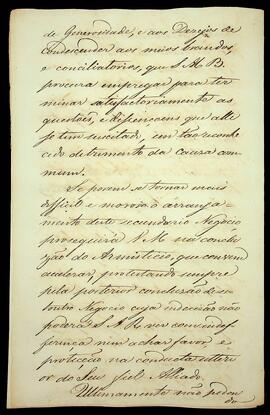 de Generosidade, e aos Dezejos de
condescender aos meios brandos,
e conciliatorios, que S. A. R.
procura empregar para ter
minar satisfactoriamente as
questões, e dispensaens que alli
se tem suscitado, em tão conhe
cido detrimento da cauza com
mum.
Se porem se tornar mais
difficil e morozo o arranja
mento deste secundario Negocio
proseguirá V. M. na conclu
zão do Armisticio, que convem
accelerar, protestando sempre
pela posterior conclusão des
outro Negocio cuja indecizão não
poderá S. A. R. ver com indef
ferença nem achar favor, e
protecção na conducta ulteri
or do Seu fiel Alliado.
Ultimamente não poden
do